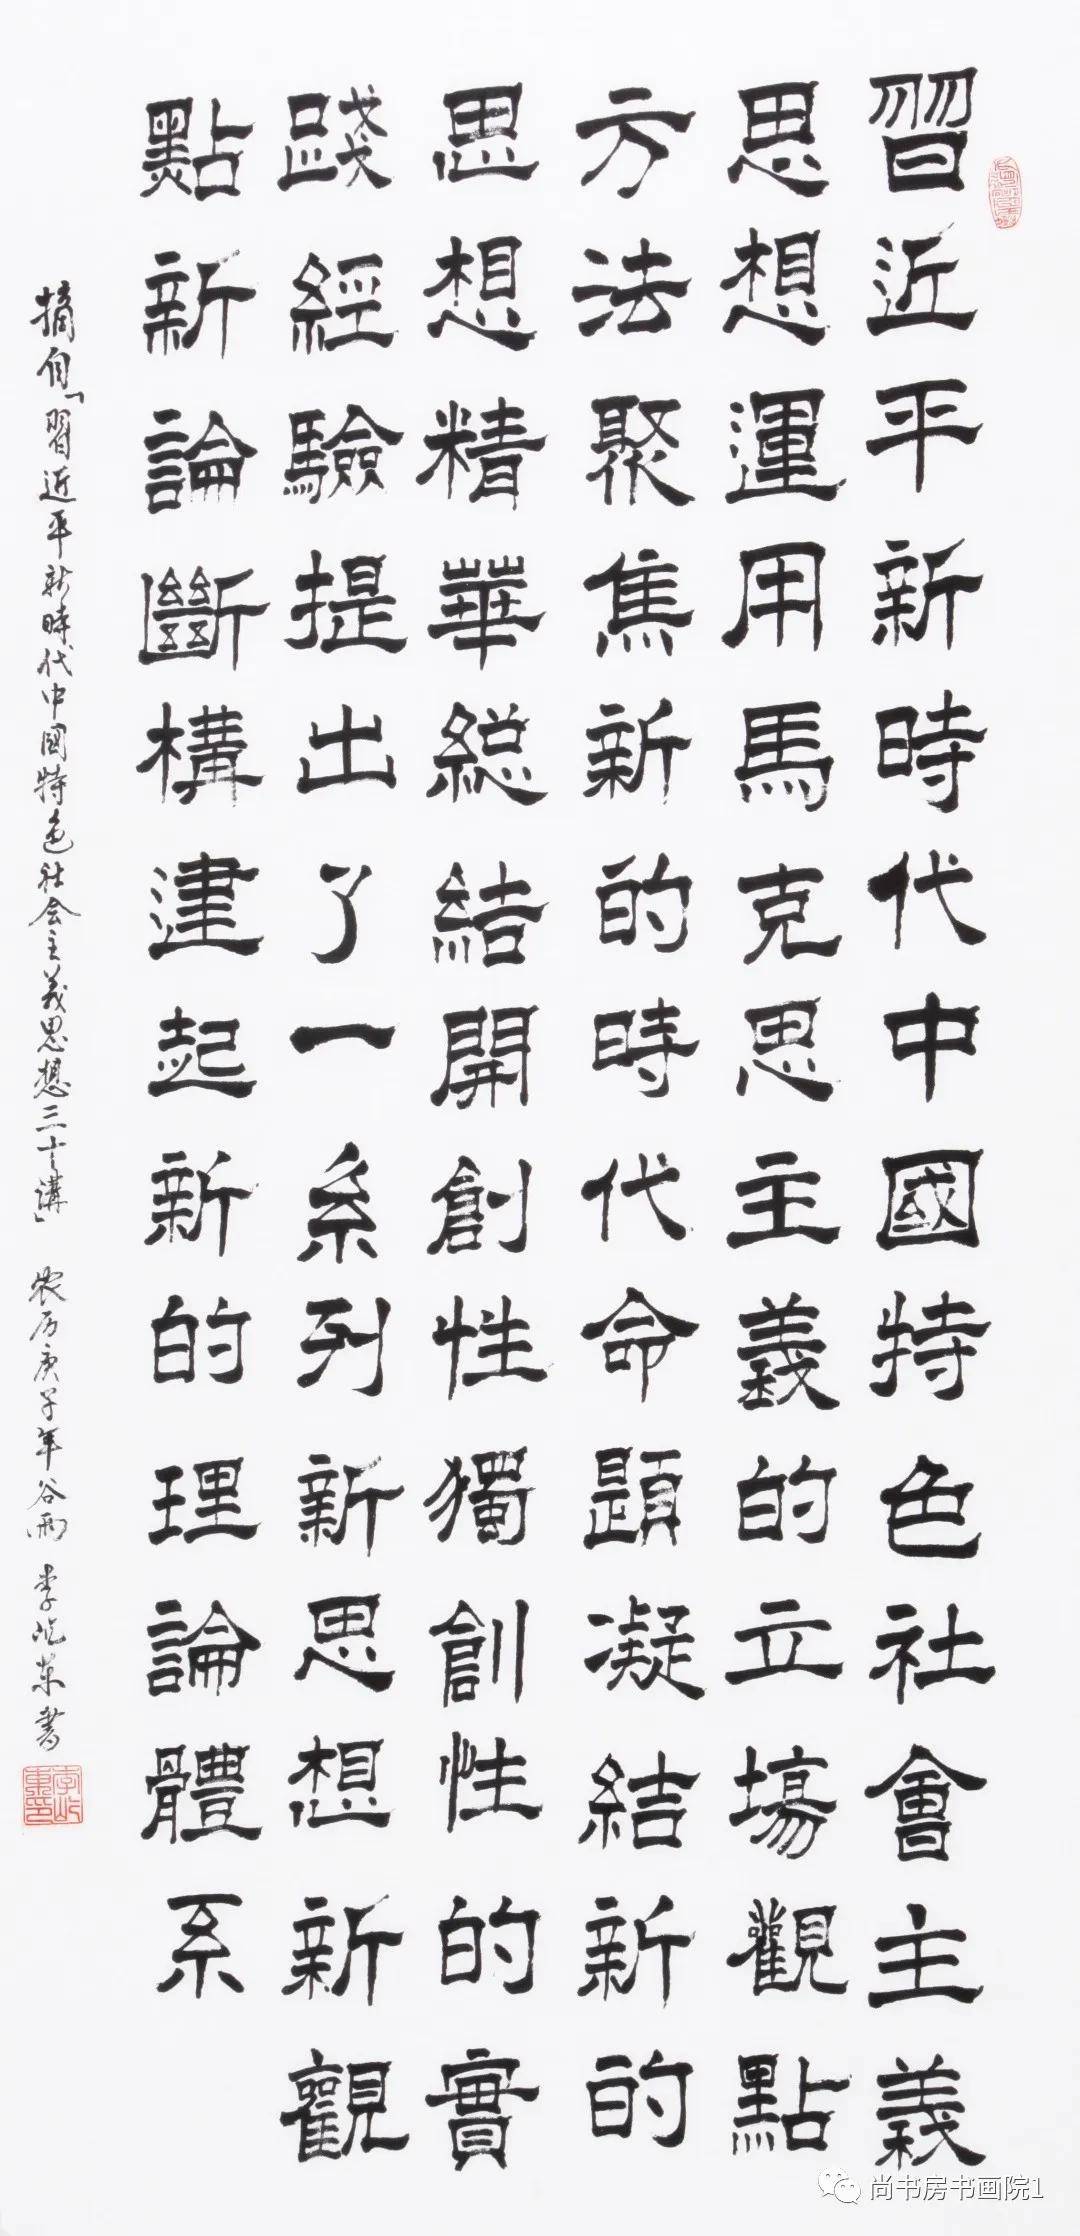 習近平新時代中國特色社會主義
思想運用馬克思主義的立場觀點
方法聚焦新的時代命題凝結新的
思想精華緫結開創性獨創性的實
踐經驗提出了一系列新思想新觀
點新論斷構建起新的理論體系
摘自「習近平新時代中國特色社会主義思想三十講」 农历庚子年谷雨 李屹东書
李屹東印
尚书房书画院1